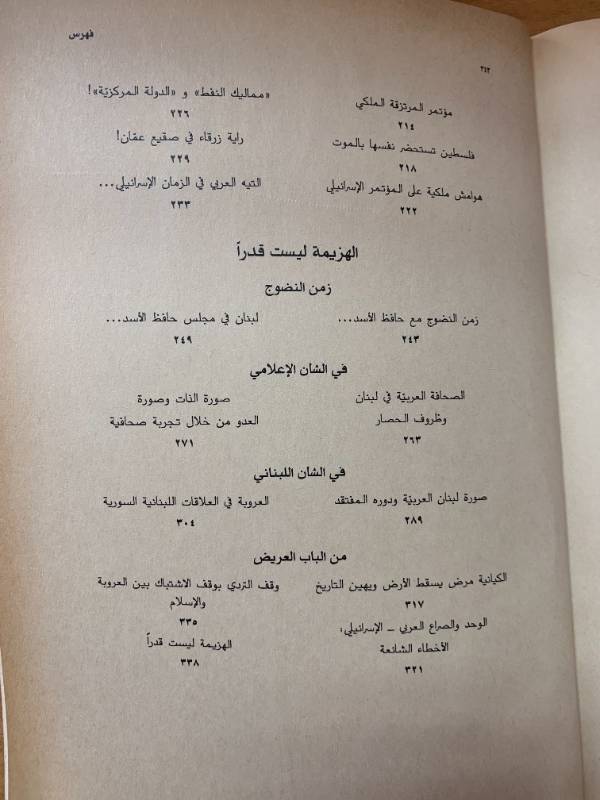 فهرس
٣٤٢
مؤتمر المرتزقة الملكي
٢١٤
فلسطين تستحضر نفسها بالموت
٢١٨
هوامش ملكية على المؤتمر الإسرائيلي
٢٢٢
«مماليك النفط» و «الدولة المركزيّة»!
٢٢٦
راية زرقاء في صقيع عمّان!
٢٢٩
التيه العربي في الزمان الإسرائيلي...
٢٣٣
الهزيمة ليست قدراً
زمن النضوج
زمن النضوج مع حافظ الأسد...
٢٤٣
لبنان في مجلس حافظ الأسد...
٢٤٩
في الشان الإعلامي
الصحافة العربيّة في لبنان
وظروف الحصار
٢٦٣
صورة الذات وصورة
العدو من خلال تجربة صحافية
٢٧١
في الشان اللبناني
صورة لبنان العربيّة ودوره المفتقد
٢٨٩
العروبة في العلاقات اللبنانية السورية
٣٠٤
من الباب العريض
الكيانية مرض يسقط الأرض ويهين التاريخ
٣١٧
الوحد والصراع العربي – الإسرائيلي،
الأخطاء الشائعة
٣٢١
وقف التردي بوقف الاشتباك بين العروبة
والإسلام
٣٣٥
الهزيمة ليست قدراً
٣٣٨